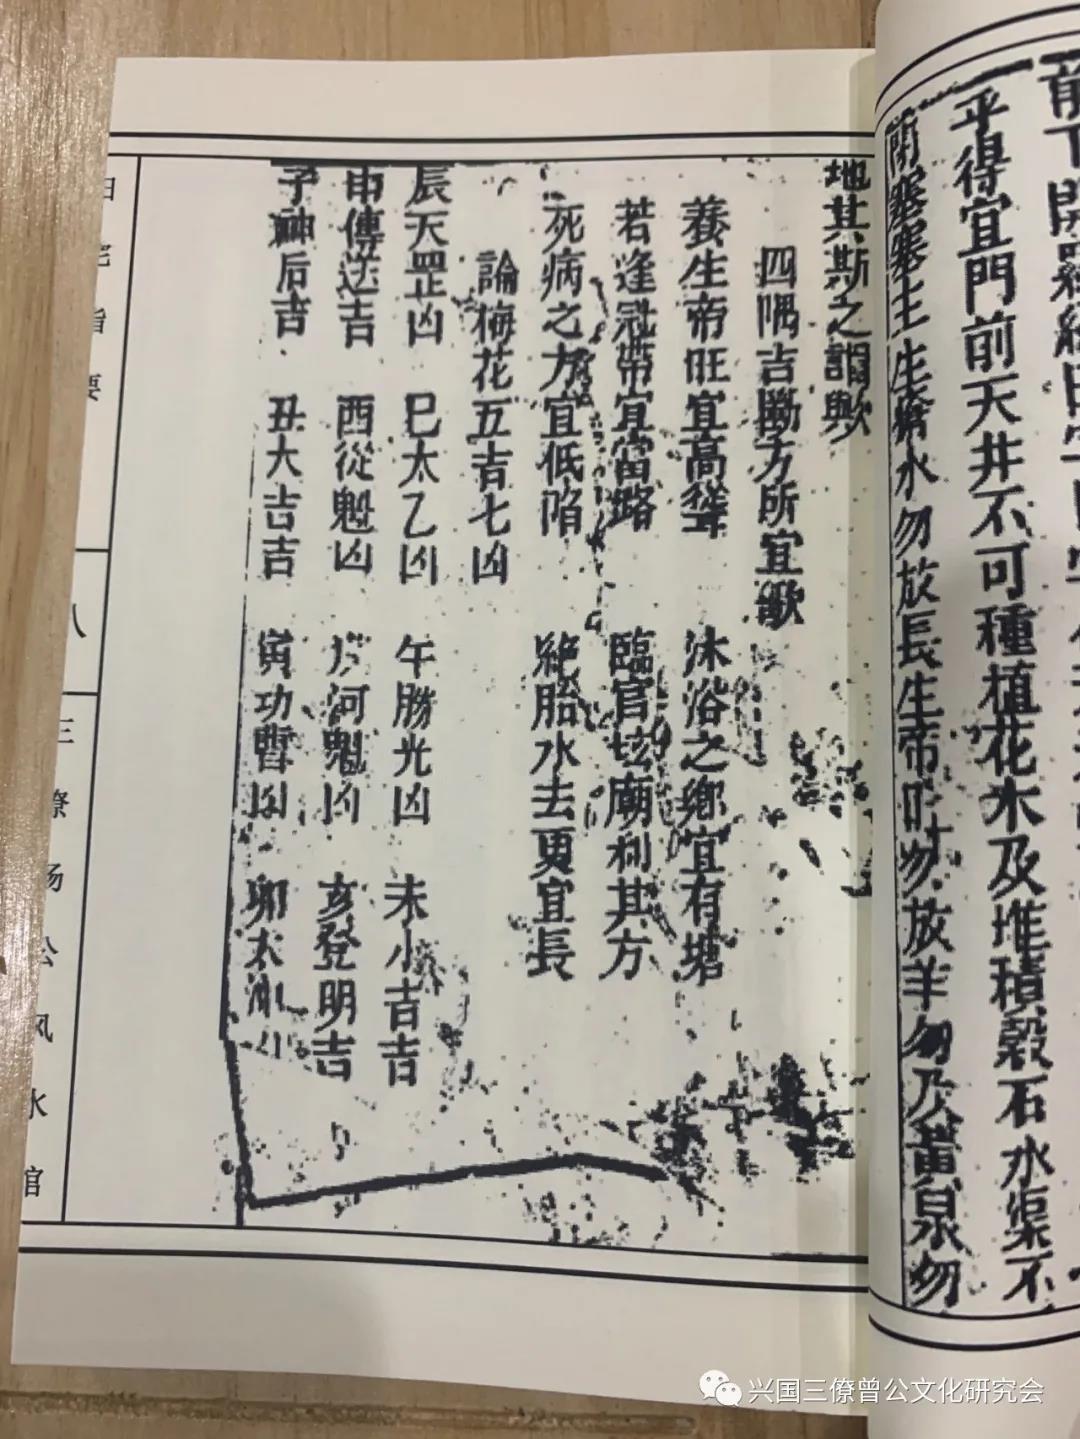 平得宜門前天井不可種植花木及堆積穀石水渠不
閉塞塞主生 水勿放長生帝旺勿放羊勿及黃泉勿
地其斯之謂歟
四隅吉勘方所宜歌
養生帝旺宜高聳 沐浴之鄉宜有塘
若逢冠帶宜當路 臨官坛廟利其方
死病之方宜低陷 絕胎水去更宜長
論梅花五吉七凶
辰天罡凶 巳太乙凶 午勝光凶 未小吉吉
申傳送吉 酉從魁凶 戌河魁凶 亥登明吉
子神后吉 丑大吉吉 寅功曹凶 卯太冲
宅指要
八
三僚杨公风水馆
兴国三僚曾公文化研究会